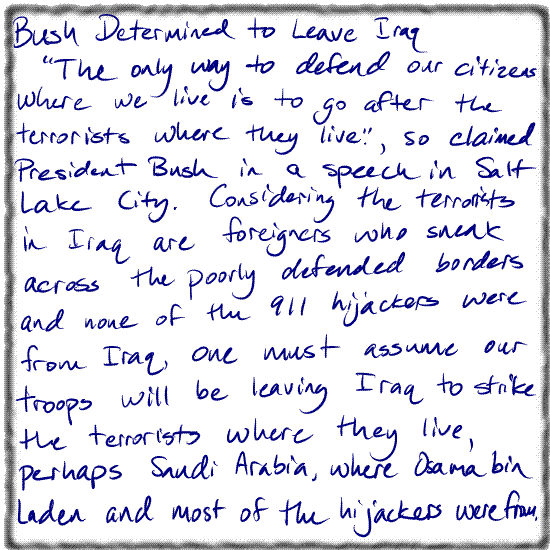 Bush Determined to Leave Iraq
"The only way to defend our citizens
where we live is to go after the
terrorists where they live.", so claimed
President Bush in a speech in Salt
Lake City. Considering the terrorists
in Iraq are foreigners who sneak
across the poorly defended borders
and none of the 911 hijackers were
from Iraq, one must assume our
troops will be leaving Iraq to strike
the terrorists where they live,
perhaps Saudi Arabia, where Osama bin
Laden and most of the hijackers were from.